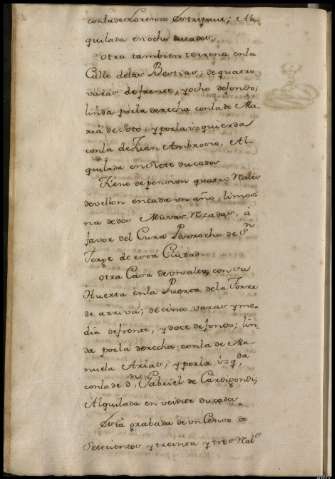 con la de Lorenzo Rodriguez, Al-
quilada en ocho ducados,
otra tambien terrena en la
Calle de las de quatro
varas de frente, y ocho de fondo,
linda por la derecha con la de Ma-
ria de Soto, y por la izquierda
con la de Juan Ambrosio, Al-
quilada en siete ducados
Tiene de pension quatro Reales
de vellon en cada un año, limos-
na de dos Misas Rezadas, a
favor del Cura Parrocho de Sn
Jorge de esta Ciudad
otra Casa de vivales, con su
Huerta en la Puerta de la Torre
de arriva, de cinco varas y me-
dia de frente, y doce de fondo; lin-
da por la derecha con la de Ma-
nuela Arias, y por la izqda
con la de dn Gabriel de
Alquilada en veinte ducados
Está grabada de un Censo de
Seiscientos y treinta y tres Rales